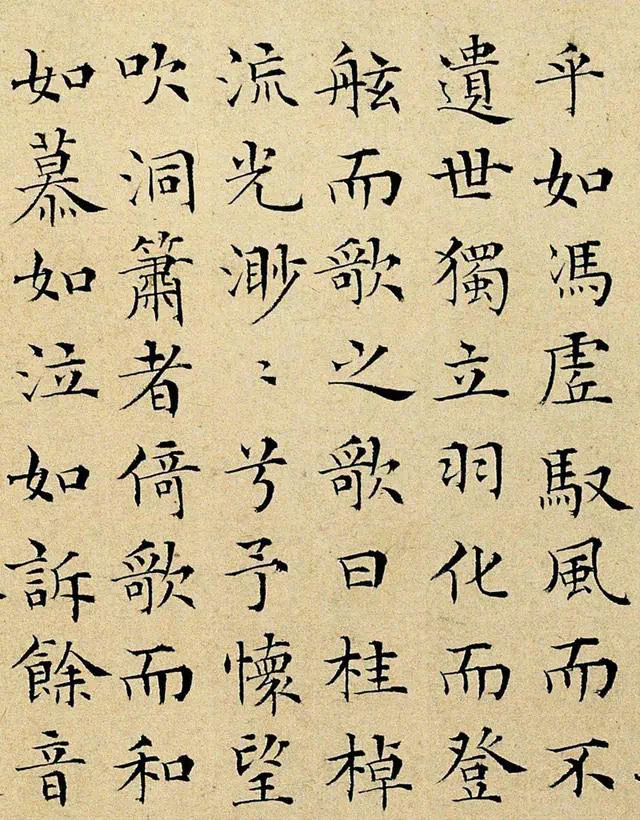 乎如馮虛馭風而不
遺世獨立羽化而登
舷而歌之歌曰桂棹
流光渺〻兮予懷望
吹洞簫者倚歌而和
如慕如泣如訴餘音